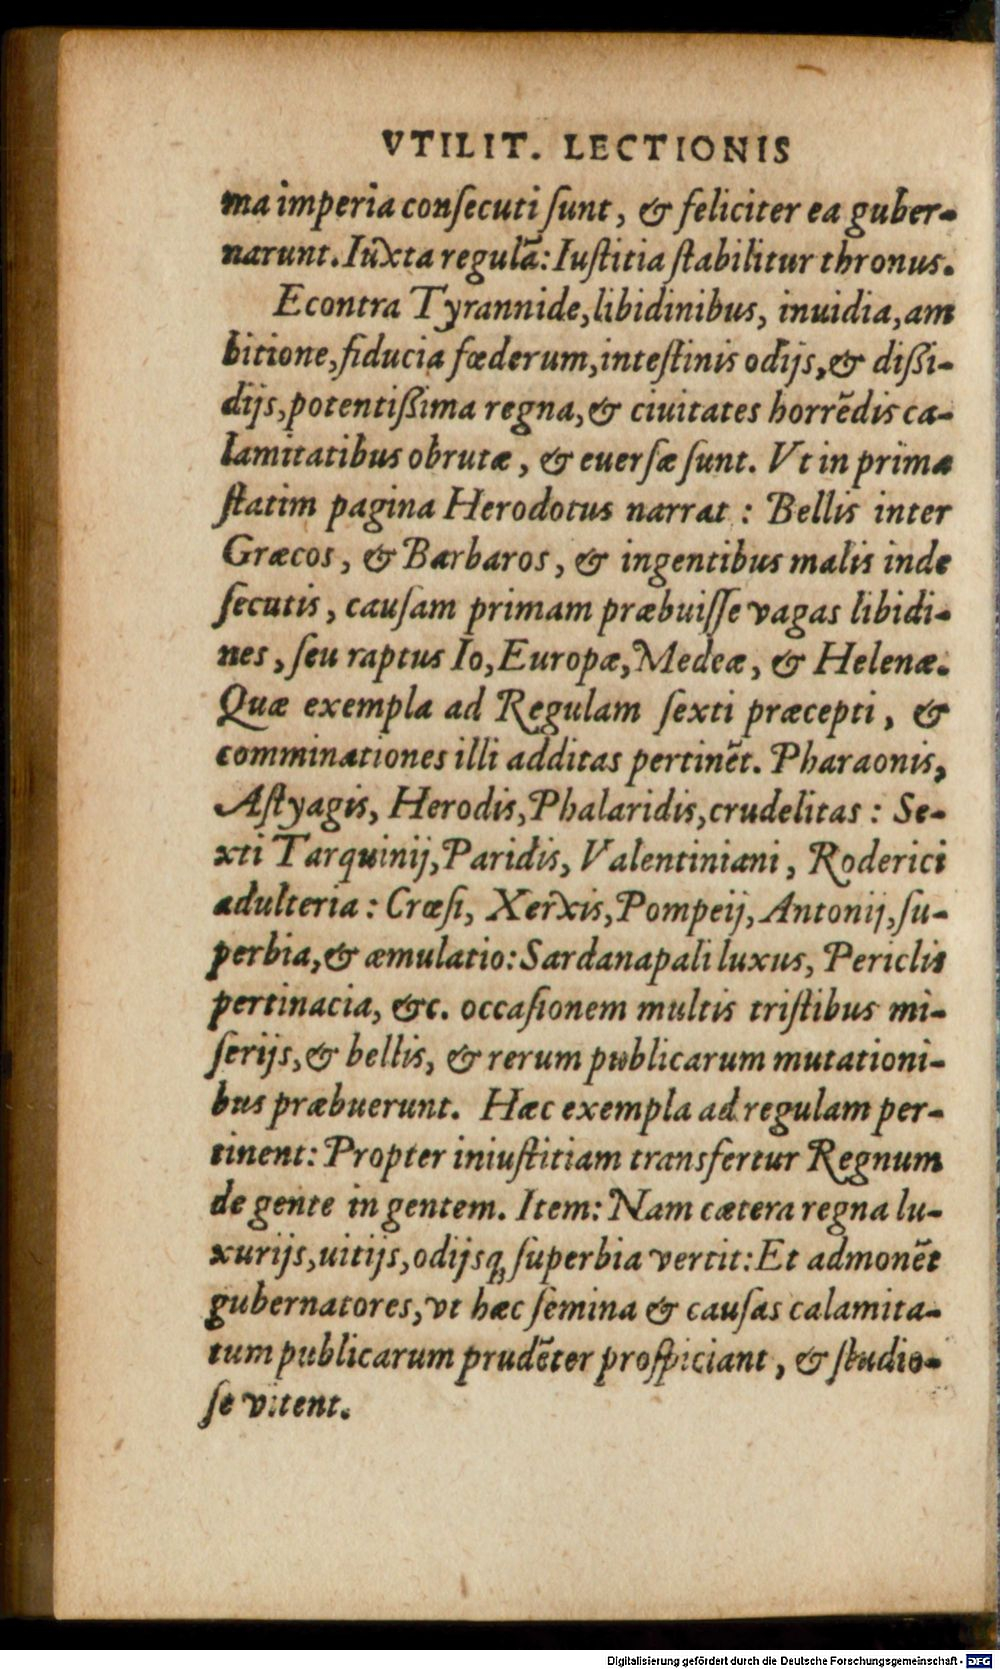 VTILIT. LECTIONIS
ma imperia conſecuti ſunt, & feliciter ea guber-
narunt. Iuxta regulā: Iuſtitia ſtabilitur thronus.
Econtra Tyrannide, libidinibus, inuidia, am
bitione, fiducia fœderum, inteſtinis odijs, & dißi-
dijs, potentißima regna, & ciuitates horrēdis ca-
lamitatibus obrutæ, & euerſæ ſunt. Vt in prima
ſtatim pagina Herodotus narrat : Bellis inter
Græcos, & Barbaros, & ingentibus malis inde
ſecutis, cauſam primam præbuiſſe vagas libidi-
nes, ſeu raptus Io, Europæ, Medeæ, & Helenæ.
Quæ exempla ad Regulam ſexti præcepti, &
comminationes illi additas pertinēt. Pharaonis,
Aſtyagis, Herodis, Phalaridis, crudelitas : Se-
xti Tarquinij, Paridis, Valentiniani, Roderici
adulteria : Crœſi, Xerxis, Pompeij, Antonij, ſu-
perbia, & æmulatio: Sardanapali luxus, Periclis
pertinacia, &c. occaſionem multis triſtibus mi-
ſerijs, & bellis, & rerum publicarum mutationi-
bus præbuerunt. Hæc exempla ad regulam per-
tinent: Propter iniuſtitiam transfertur Regnum
de gente in gentem. Item: Nam cætera regna lu-
xurijs, uitijs, odijsq́; ſuperbia vertit: Et admonēt
gubernatores, vt hæc ſemina & cauſas calamita-
tum publicarum prudēter proſpiciant, & ſtudio-
ſe vitent.
Digitalisierung gefördert durch die Deutsche Forschungsgemeinschaft - DFG